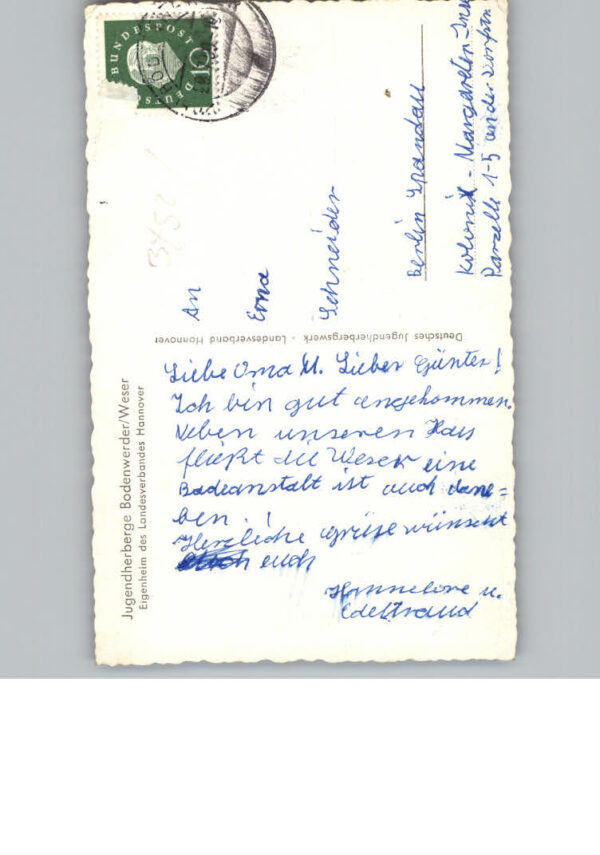 Jugendherberge Bodenwerder/Weser
Eigenheim des Landesverbandes Hannover
Liebe Oma u. Lieber Günter!
Ich bin gut angekommen.
Neben unseren Haus
fließt die Weser eine
Badeanstalt ist auch dane=
ben.!
Herzliche grüse wünscht
euch
Hannelore u.
Edeltraud
Deutsches Jugendherbergswerk - Landesverband Hannover
DEUTSCHE BUNDESPOST
10
3452
An
Erna
Schneider
Berlin Spandau
Kolonie - Margareten-
Parzelle 1-5 an der